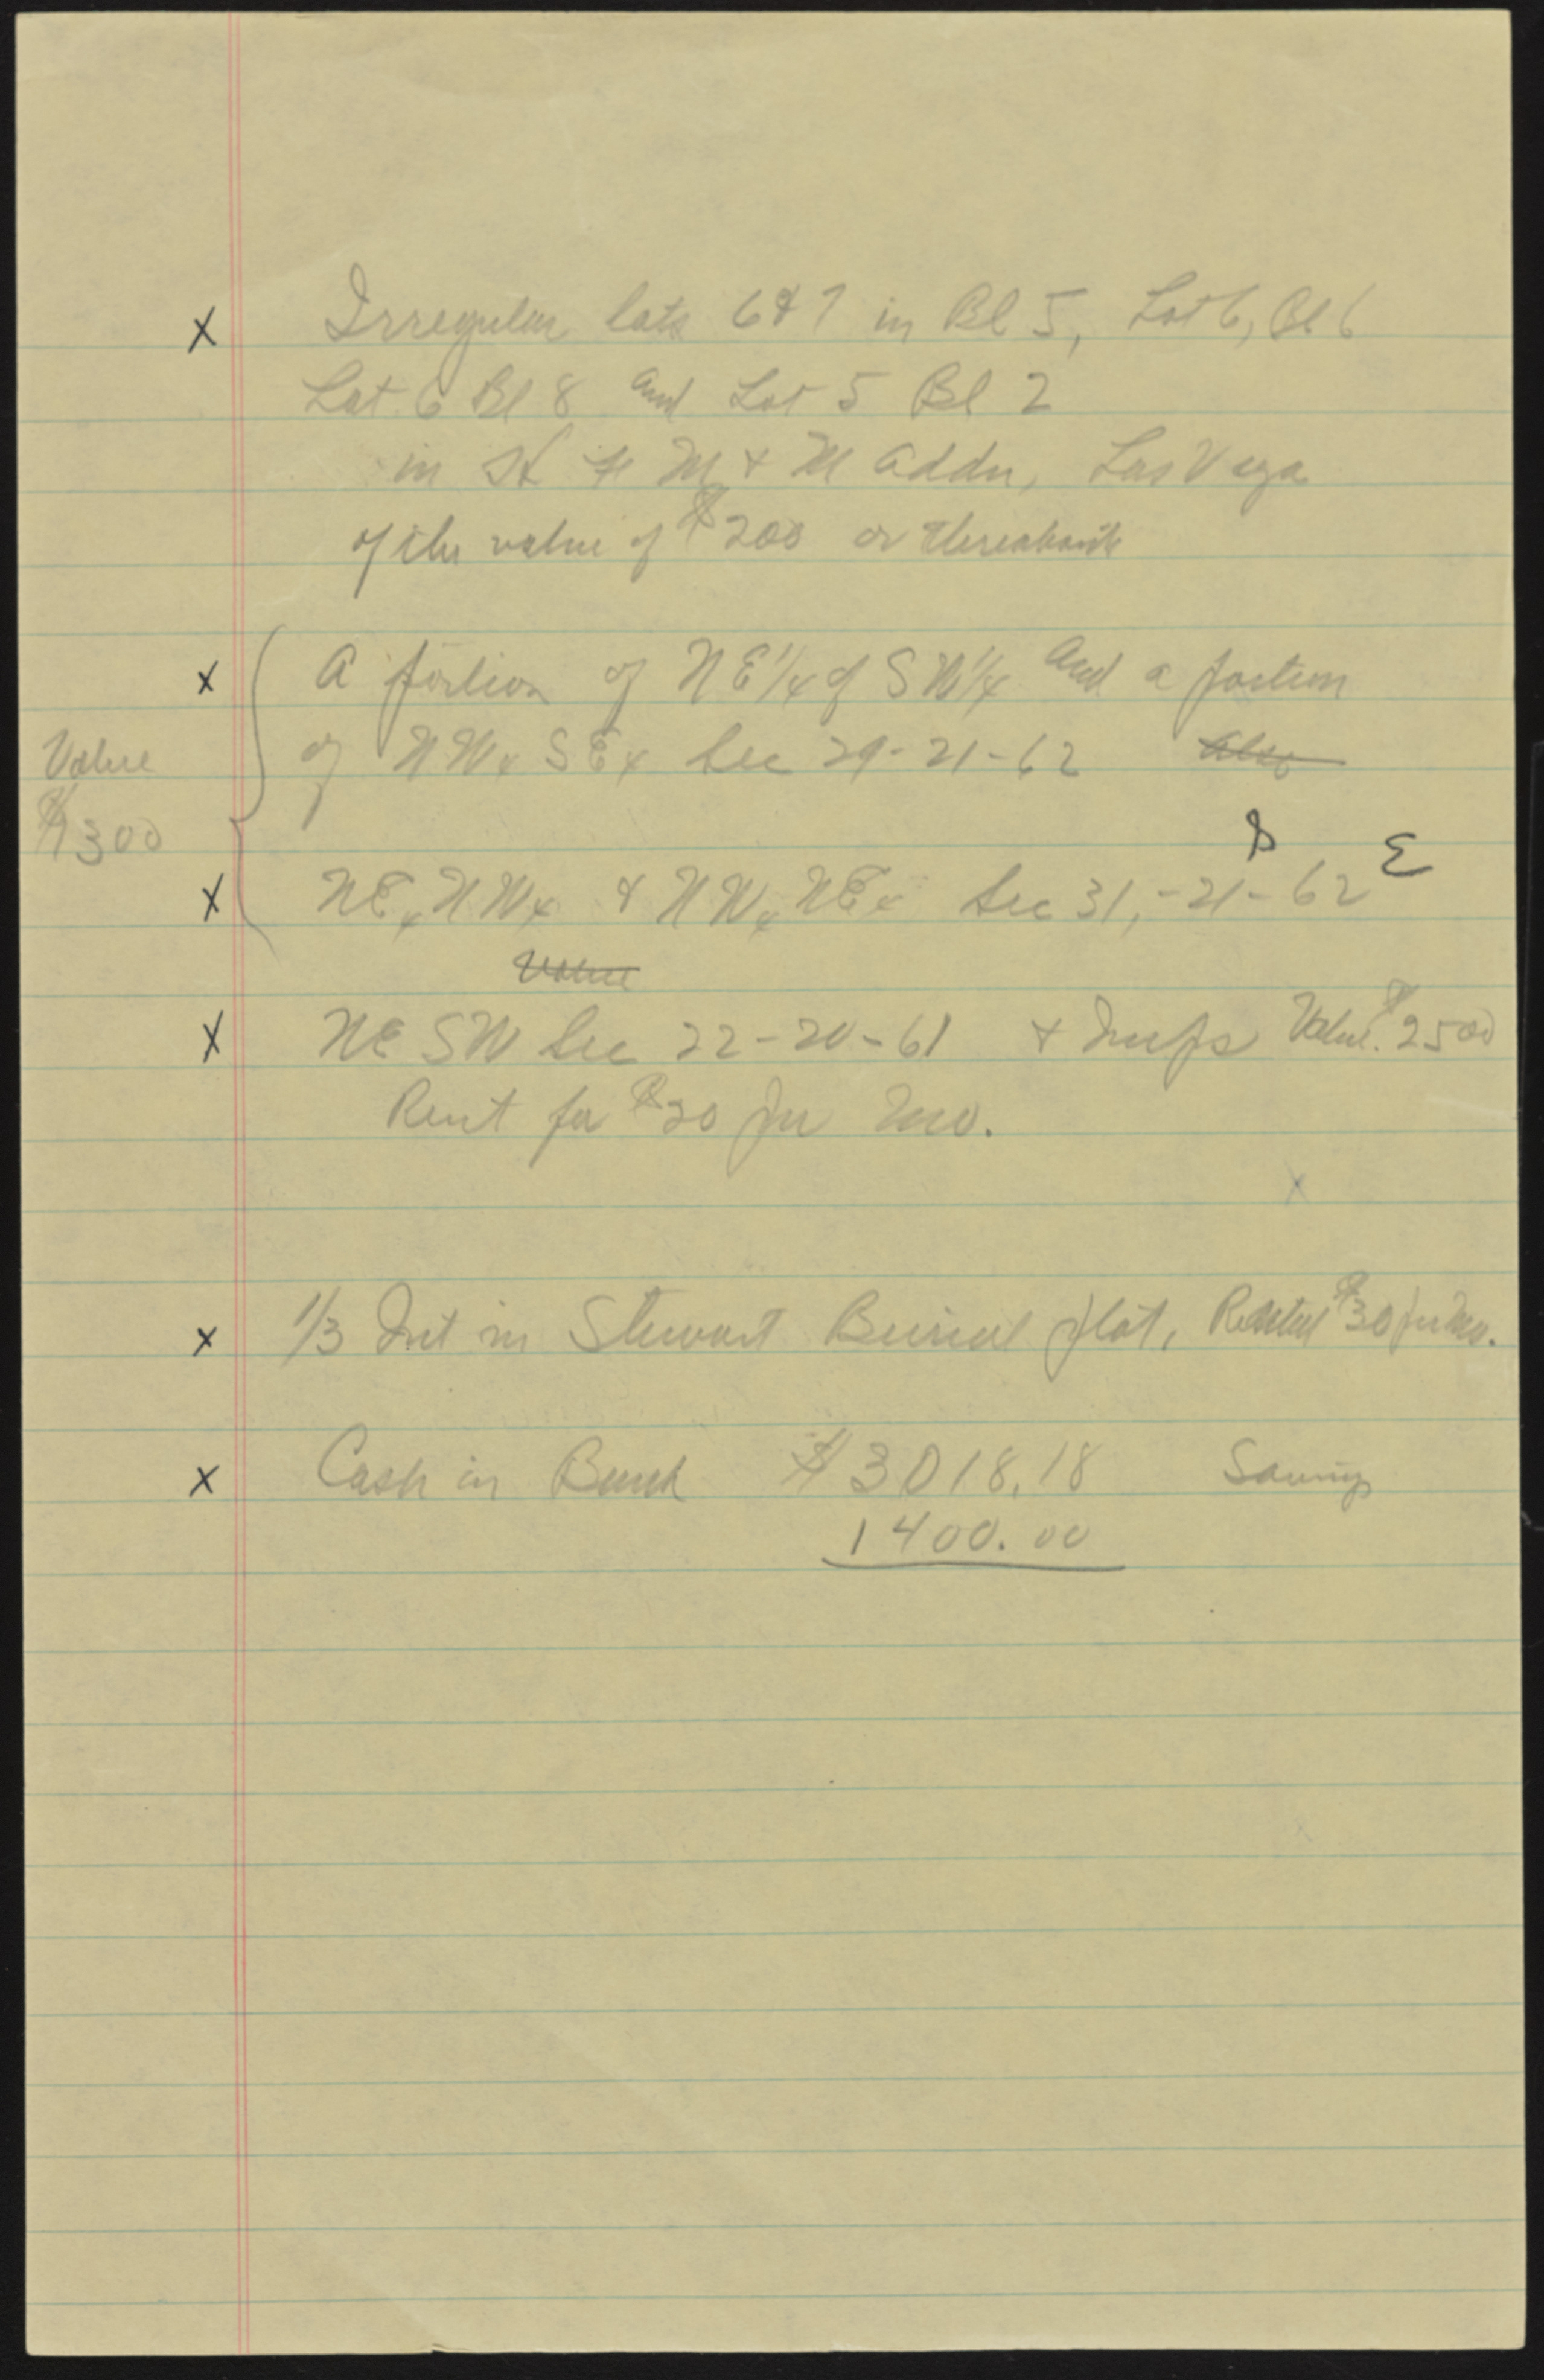 X Irregular lots 6 & 7 in Bl 5, Lot 6, Bl 6
Lot 6 Bl 8 and Lot 5 Bl 2
in H F M & M Addn, Las Vegas
of the value of $200 or thereabouts
X A portion of NE 1/4 of SW 1/4 and a portion
of NW4 SE4 Sec 29-21-62 Also
Value
$300
S E
X NE4 NW4 & NW4 NE4 Sec 31,-21-62
Value
X NE SW Sec 22-20-61 & Imps Value $2500
Rent for $20 per mo.
X
X 1/3 Int in Stewart Burial plot, Rented $30 per mo.
X Cash in Bank $3018.18 Savings
1400.00